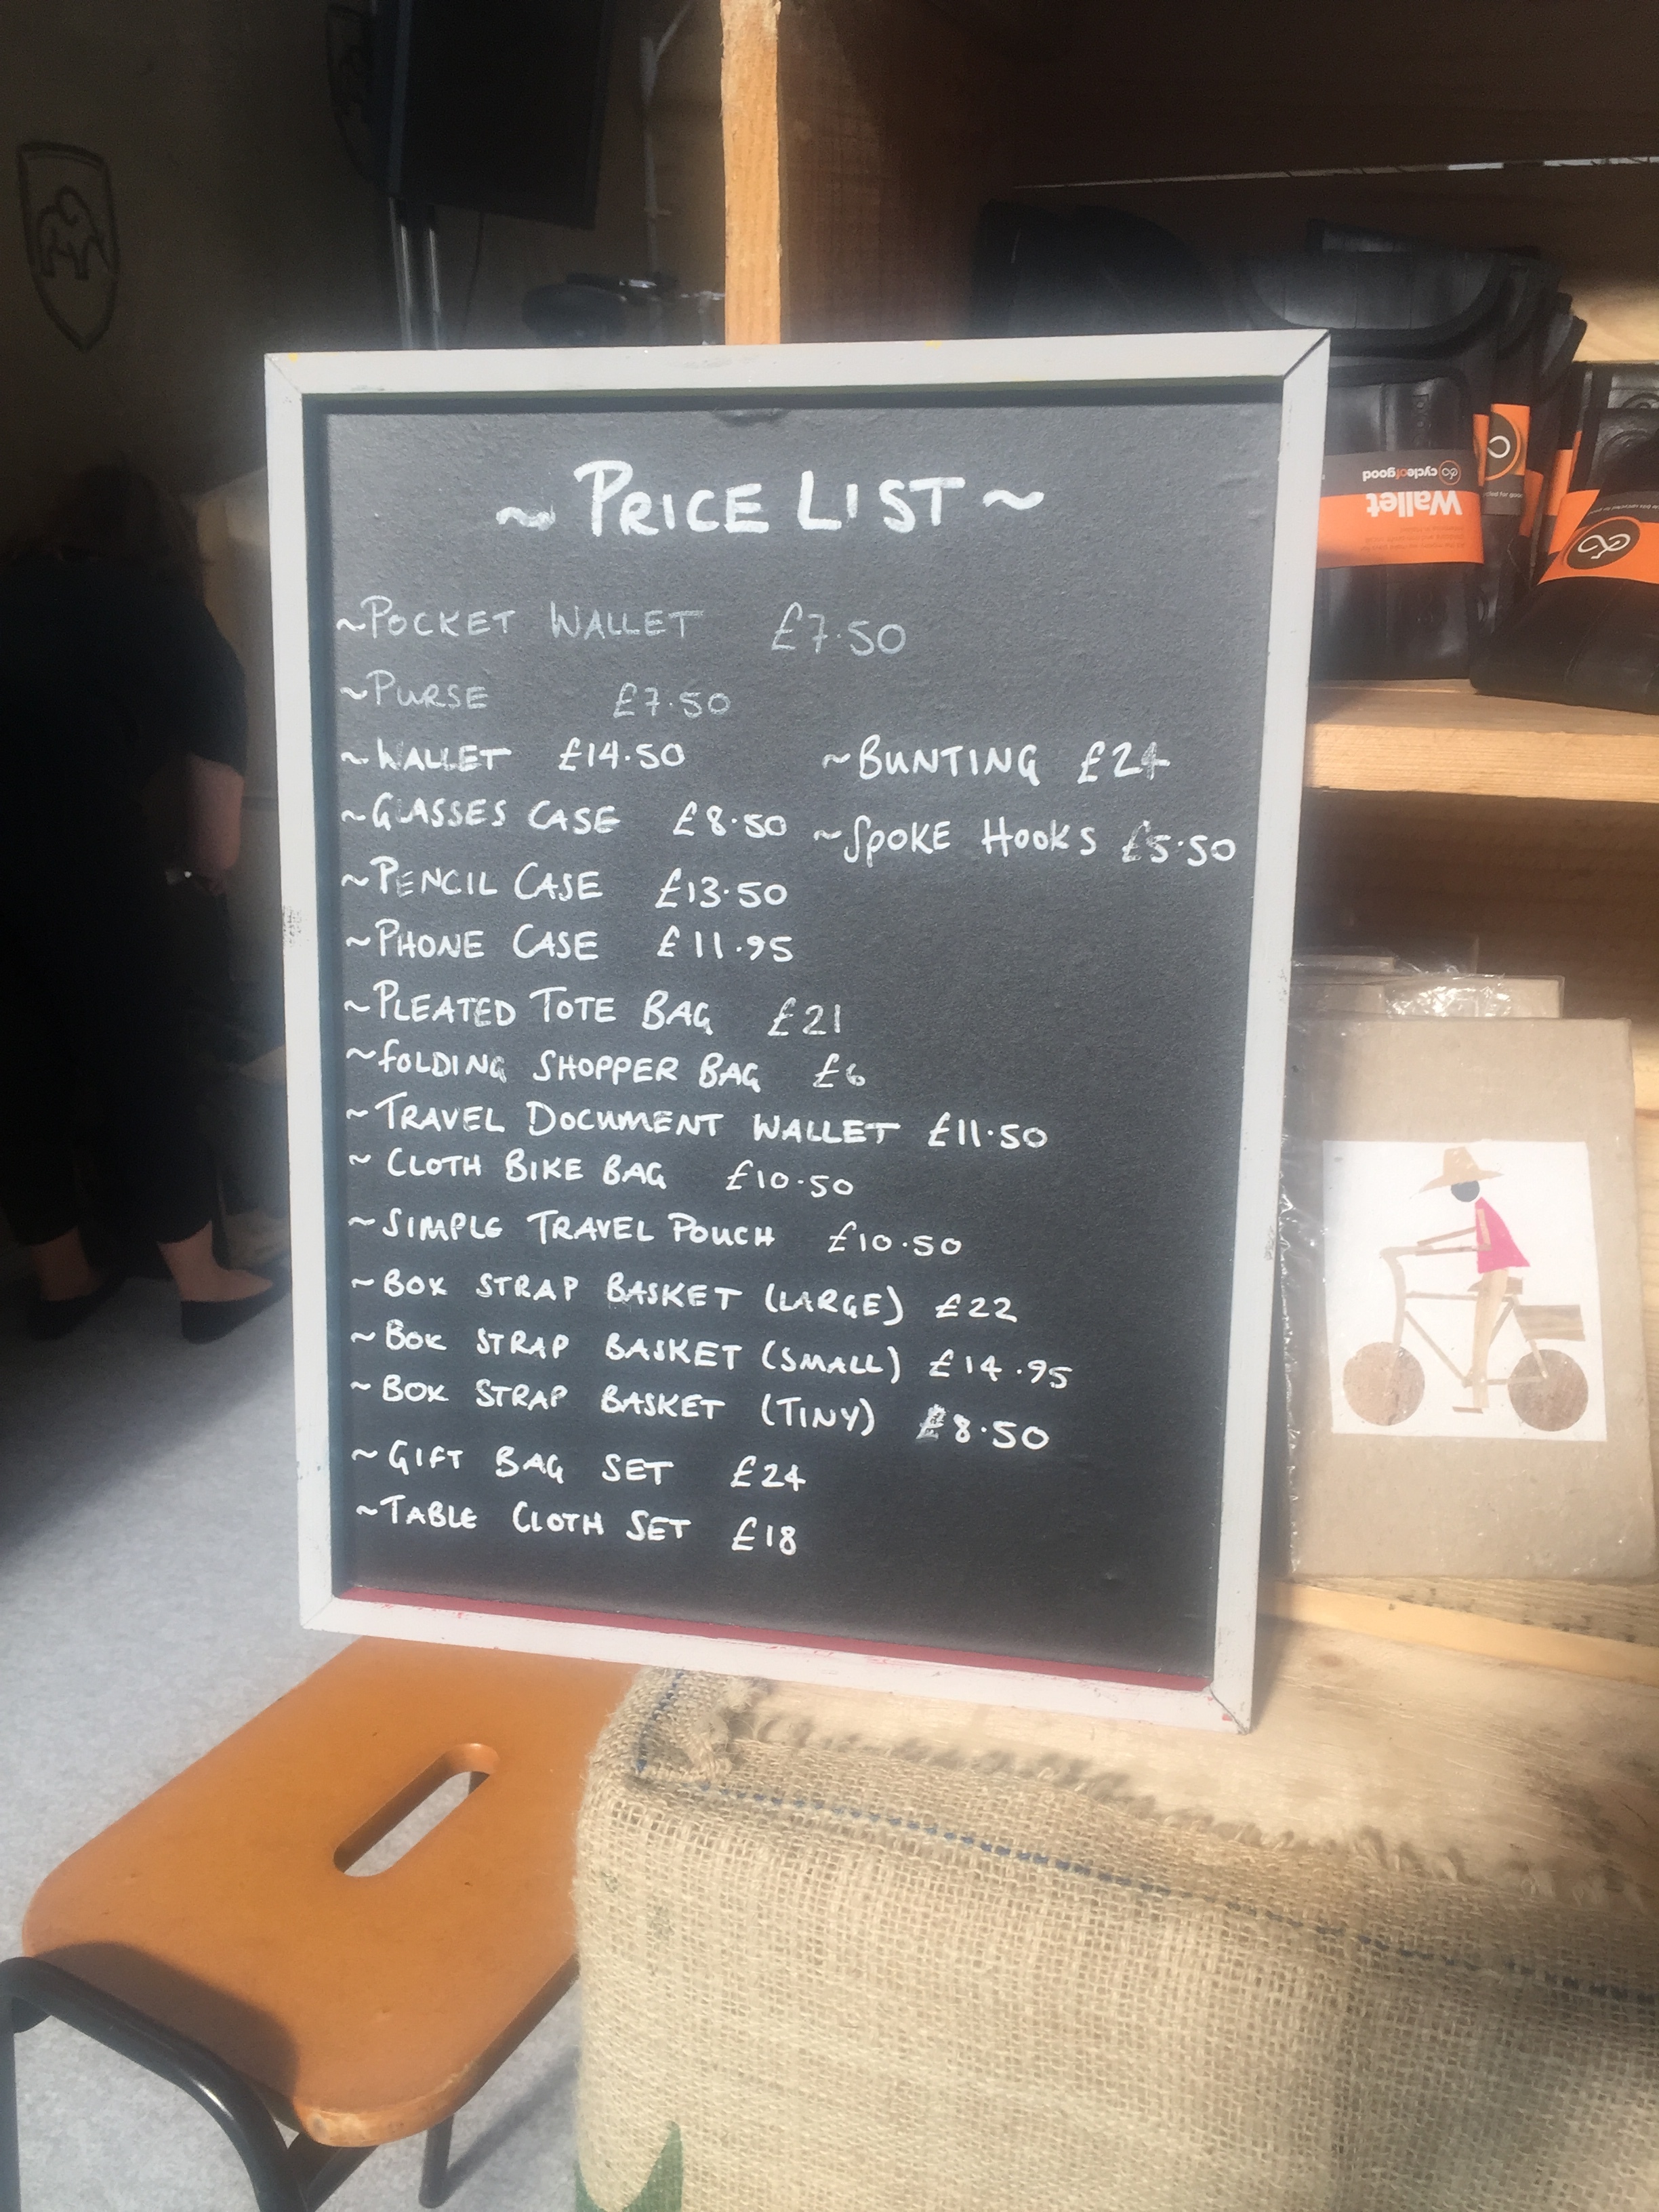 ~ PRICE LIST ~
~POCKET WALLET £7.50
~PURSE £7.50
~WALLET £14.50
~GLASSES CASE £8.50
~PENCIL CASE £13.50
~PHONE CASE £11.95
~PLEATED TOTE BAG £21
~FOLDING SHOPPER BAG £6
~TRAVEL DOCUMENT WALLET £11.50
~ CLOTH BIKE BAG £10.50
~SIMPLE TRAVEL POUCH £10.50
~BOX STRAP BASKET (LARGE) £22
~BOX STRAP BASKET (SMALL) £14.95
~BOX STRAP BASKET (TINY) £8.50
~GIFT BAG SET £24
~TABLE CLOTH SET £18
~BUNTING £24
~SPOKE HOOKS £5.50
cycleofgood
Wallet